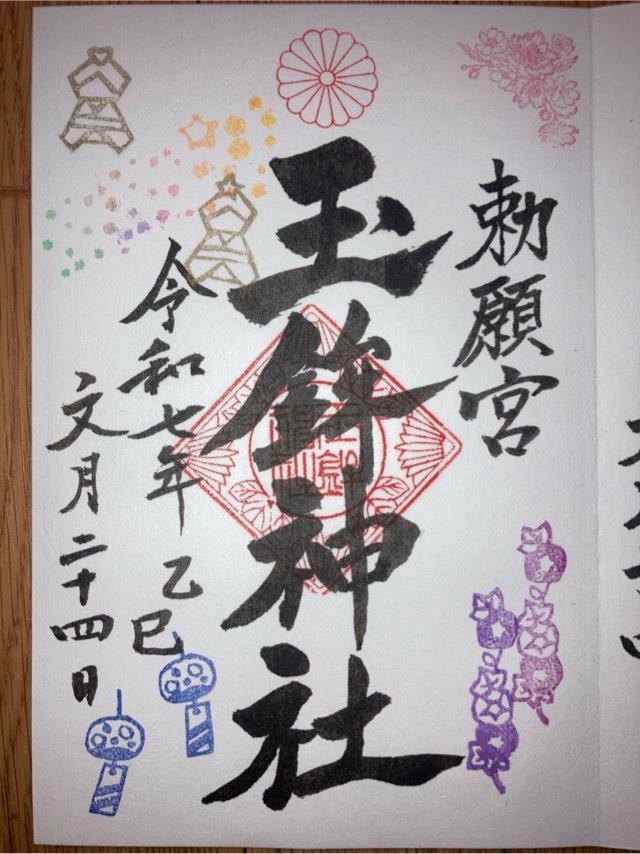 勅願宮
玉鉾神社
令和七年 乙巳
文月二十四日